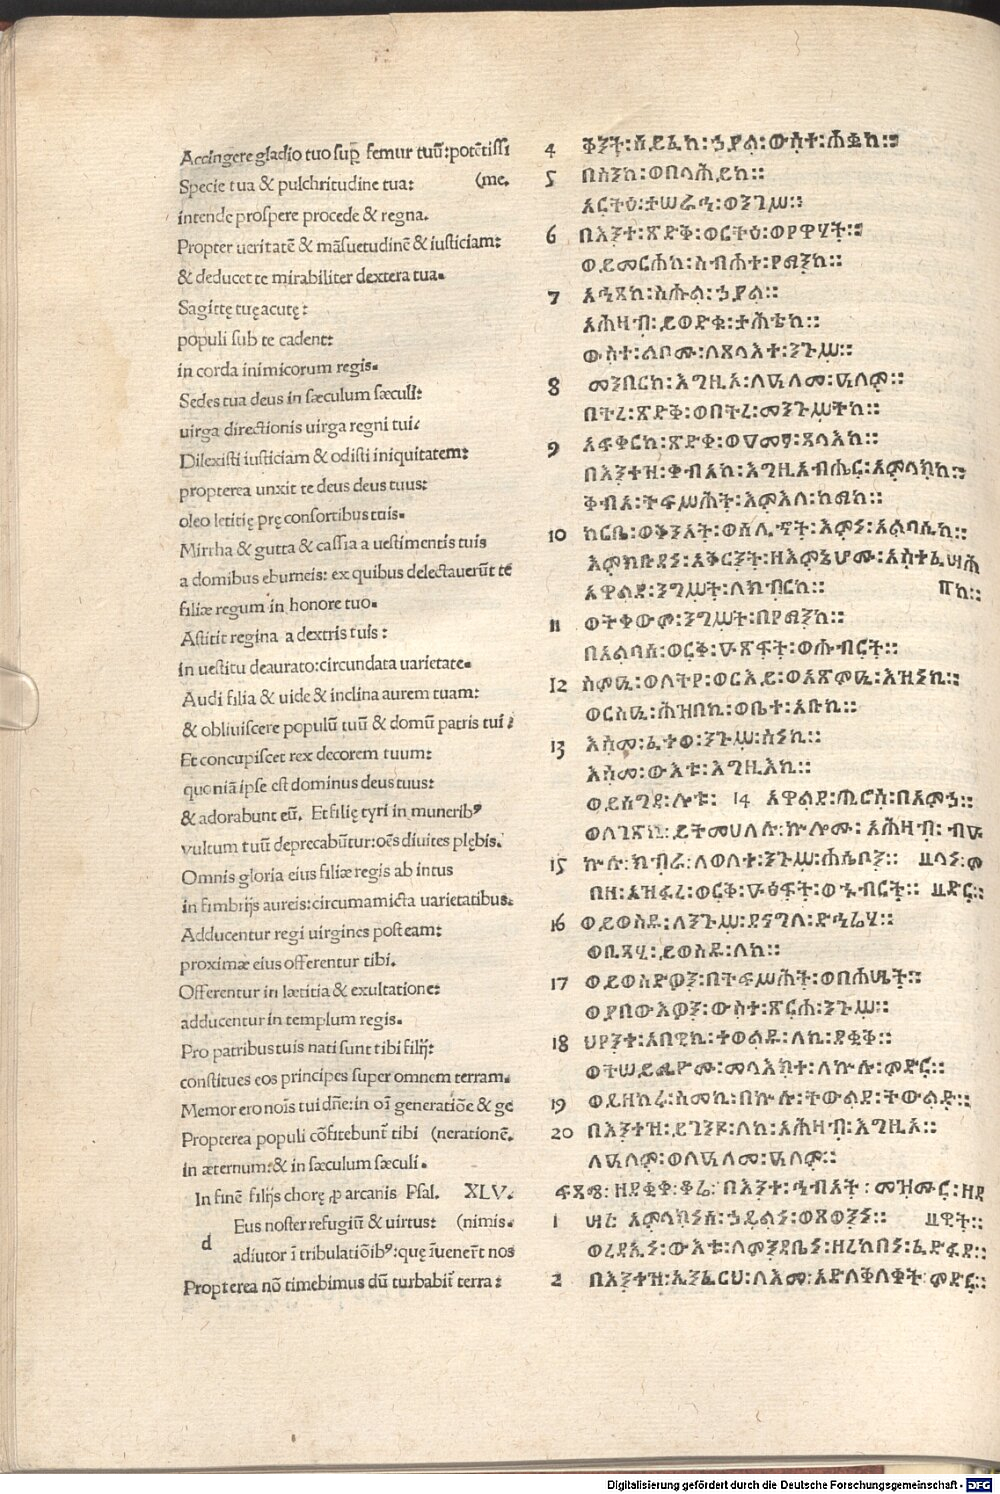 Accingere gladio tuo sup̱ femur tuū:potētissi
Specie tua & pulchritudine tua: (me.
intende prospere procede & regna.
Propter ueritatē & māsuetudinē & iusticiam:
& deducet te mirabiliter dextera tua.
Sagittę tuę acutę:
populi sub te cadent:
in corda inimicorum regis.
Sedes tua deus in sæculum sæculi:
uirga directionis uirga regni tui:
Dilexisti iusticiam & odisti iniquitatem:
propterea unxit te deus deus tuus:
oleo letitię prę consortibus tuis.
Mirrha & gutta & cassia a uestimentis tuis
a domibus eburneis: ex quibus delectauerūt te
filiæ regum in honore tuo.
Astitit regina a dextris tuis:
in uestitu deaurato:circundata uarietate.
Audi filia & uide & inclina aurem tuam:
& obliuiscere populū tuū & domū patris tui:
Et concupiscet rex decorem tuum:
quoniā ipse est dominus deus tuus:
& adorabunt eū. Et filię tyri in munerib⁹
vultum tuū deprecabūtur:oēs diuites plębis.
Omnis gloria eius filiæ regis ab intus
in fimbrijs aureis:circumamicta uarietatibus.
Adducentur regi uirgines post eam:
proximæ eius offerentur tibi.
Offerentur in lætitia & exultatione:
adducentur in templum regis.
Pro patribus tuis nati sunt tibi filij:
constitues eos principes super omnem terram.
Memor ero noīs tui dñe:in oī generatiōe & ge
Propterea populi cōfitebunt̄ tibi (nerationē.
in æternum:& in sæculum sæculi.
In finē filijs chorę ꝓ arcanis Psal. XLV.
dEus noster refugiū & uirtus: (nimis.
adiutor ī tribulatiōib⁹:quę īuenerūt nos
Propterea nō timebimus dū turbabit̄ terra:
4 ቅንት፡ሰይፈከ፡ኃያል፡ውስተ፡ሐቌከ።
5 በስንከ፡ወበላሕይከ።
አርትዕ፡ተሠራኅ፡ወንግሥ።
6 በእንተ፡ጽድቅ፡ወርትዕ፡ወየዋሃት።
ወይመርሐከ፡ስብሐተ፡የማንከ።
7 አኅጻከ፡ስሑል፡ኃያል።
አሕዛብ፡ይወድቁ፡ታሕቴከ።
ውስተ፡ልቦሙ፡ለጸላእተ፡ንጉሥ።
8 መንበርከ፡እግዚኦ፡ለዓለመ፡ዓለም።
በትረ፡ጽድቅ፡ወበትረ፡መንግሥትከ።
9 አፍቀርከ፡ጽድቀ፡ወዐመፃ፡ጸላእከ።
በእንተዝ፡ቀብአከ፡እግዚአብሔር፡አምላክከ።
ቅብአ፡ትፍሥሕት፡እምእለ፡ከማከ።
10 ከርቤ፡ወቅንአት፡ወሰሊኆት፡እምነ፡አልባሲከ።
አቅርንት፡ዘእምኔሆሙ፡አስተፌሥሐ
አዋልደ፡ንግሥት፡ለክብርከ። ከ።
11 ወትቀውም፡ንግሥት፡በየማንከ።
በአልባሰ፡ወርቅ፡ዑጽፍት፡ወሑብርት።
12 ስምዒ፡ወለትየ፡ወርእይ፡ወአጽምዒ፡እዝነኪ።
ወርስዒ፡ሕዝበኪ፡ወቤተ፡አቡኪ።
13 እስመ፡ፈተወ፡ንጉሥ፡ስነኪ።
እስመ፡ውእቱ፡እግዚእኪ።
ወይሰግዳ፡ሎቱ፡ 14 አዋልደ፡ጢሮስ፡በአምኃ።
ወለገጽኪ፡ይትመሀለሉ፡ኵሎሙ፡አሕዛብ፡ብዑ
15 ኵሉ፡ክብራ፡ለወለተ፡ንጉሥ፡ሐሴቦን። ም
በዘ፡አዝፋረ፡ወርቅ፡ዑፅፍት፡ወኁብርት። ምድር።
16 ወይወስዱ፡ለንጉሥ፡ደናግለ፡ድኅሬሃ።
ወቢጻሂ፡ይወስዱ፡ለከ።
17 ወይወስድዎን፡በትፍሥሕት፡ወበሐሤት።
ወያበውእዎን፡ውስተ፡ጽርሐ፡ንጉሥ።
18 ህየንተ፡አበዊኪ፡ተወልዱ፡ለኪ፡ደቂቅ።
ወትሠይምዮሙ፡መላእክተ፡ለኵሉ፡ምድር።
19 ወይዘከሩ፡ስመኪ፡በኵሉ፡ትውልደ፡ትውልድ።
20 በእንተዝ፡ይገንዩ፡ለከ፡አሕዛብ፡እግዚኦ።
ለዓለም፡ወለዓለመ፡ዓለም።
ዘደቂቀ፡ቆሬ፡በእንተ፡ኅቡአት፡መዝሙር፡ዘዳ
1 አምላክነሰ፡ኃይልነ፡ወጸወንነ።
ወረዳኢነ፡ውእቱ፡ለምንዳቤነ፡ዘረከበነ፡ፈድፋደ።
2 በእንተዝ፡ኢንፈርህ፡ለእመ፡አድለቅለቀት፡ምድር።